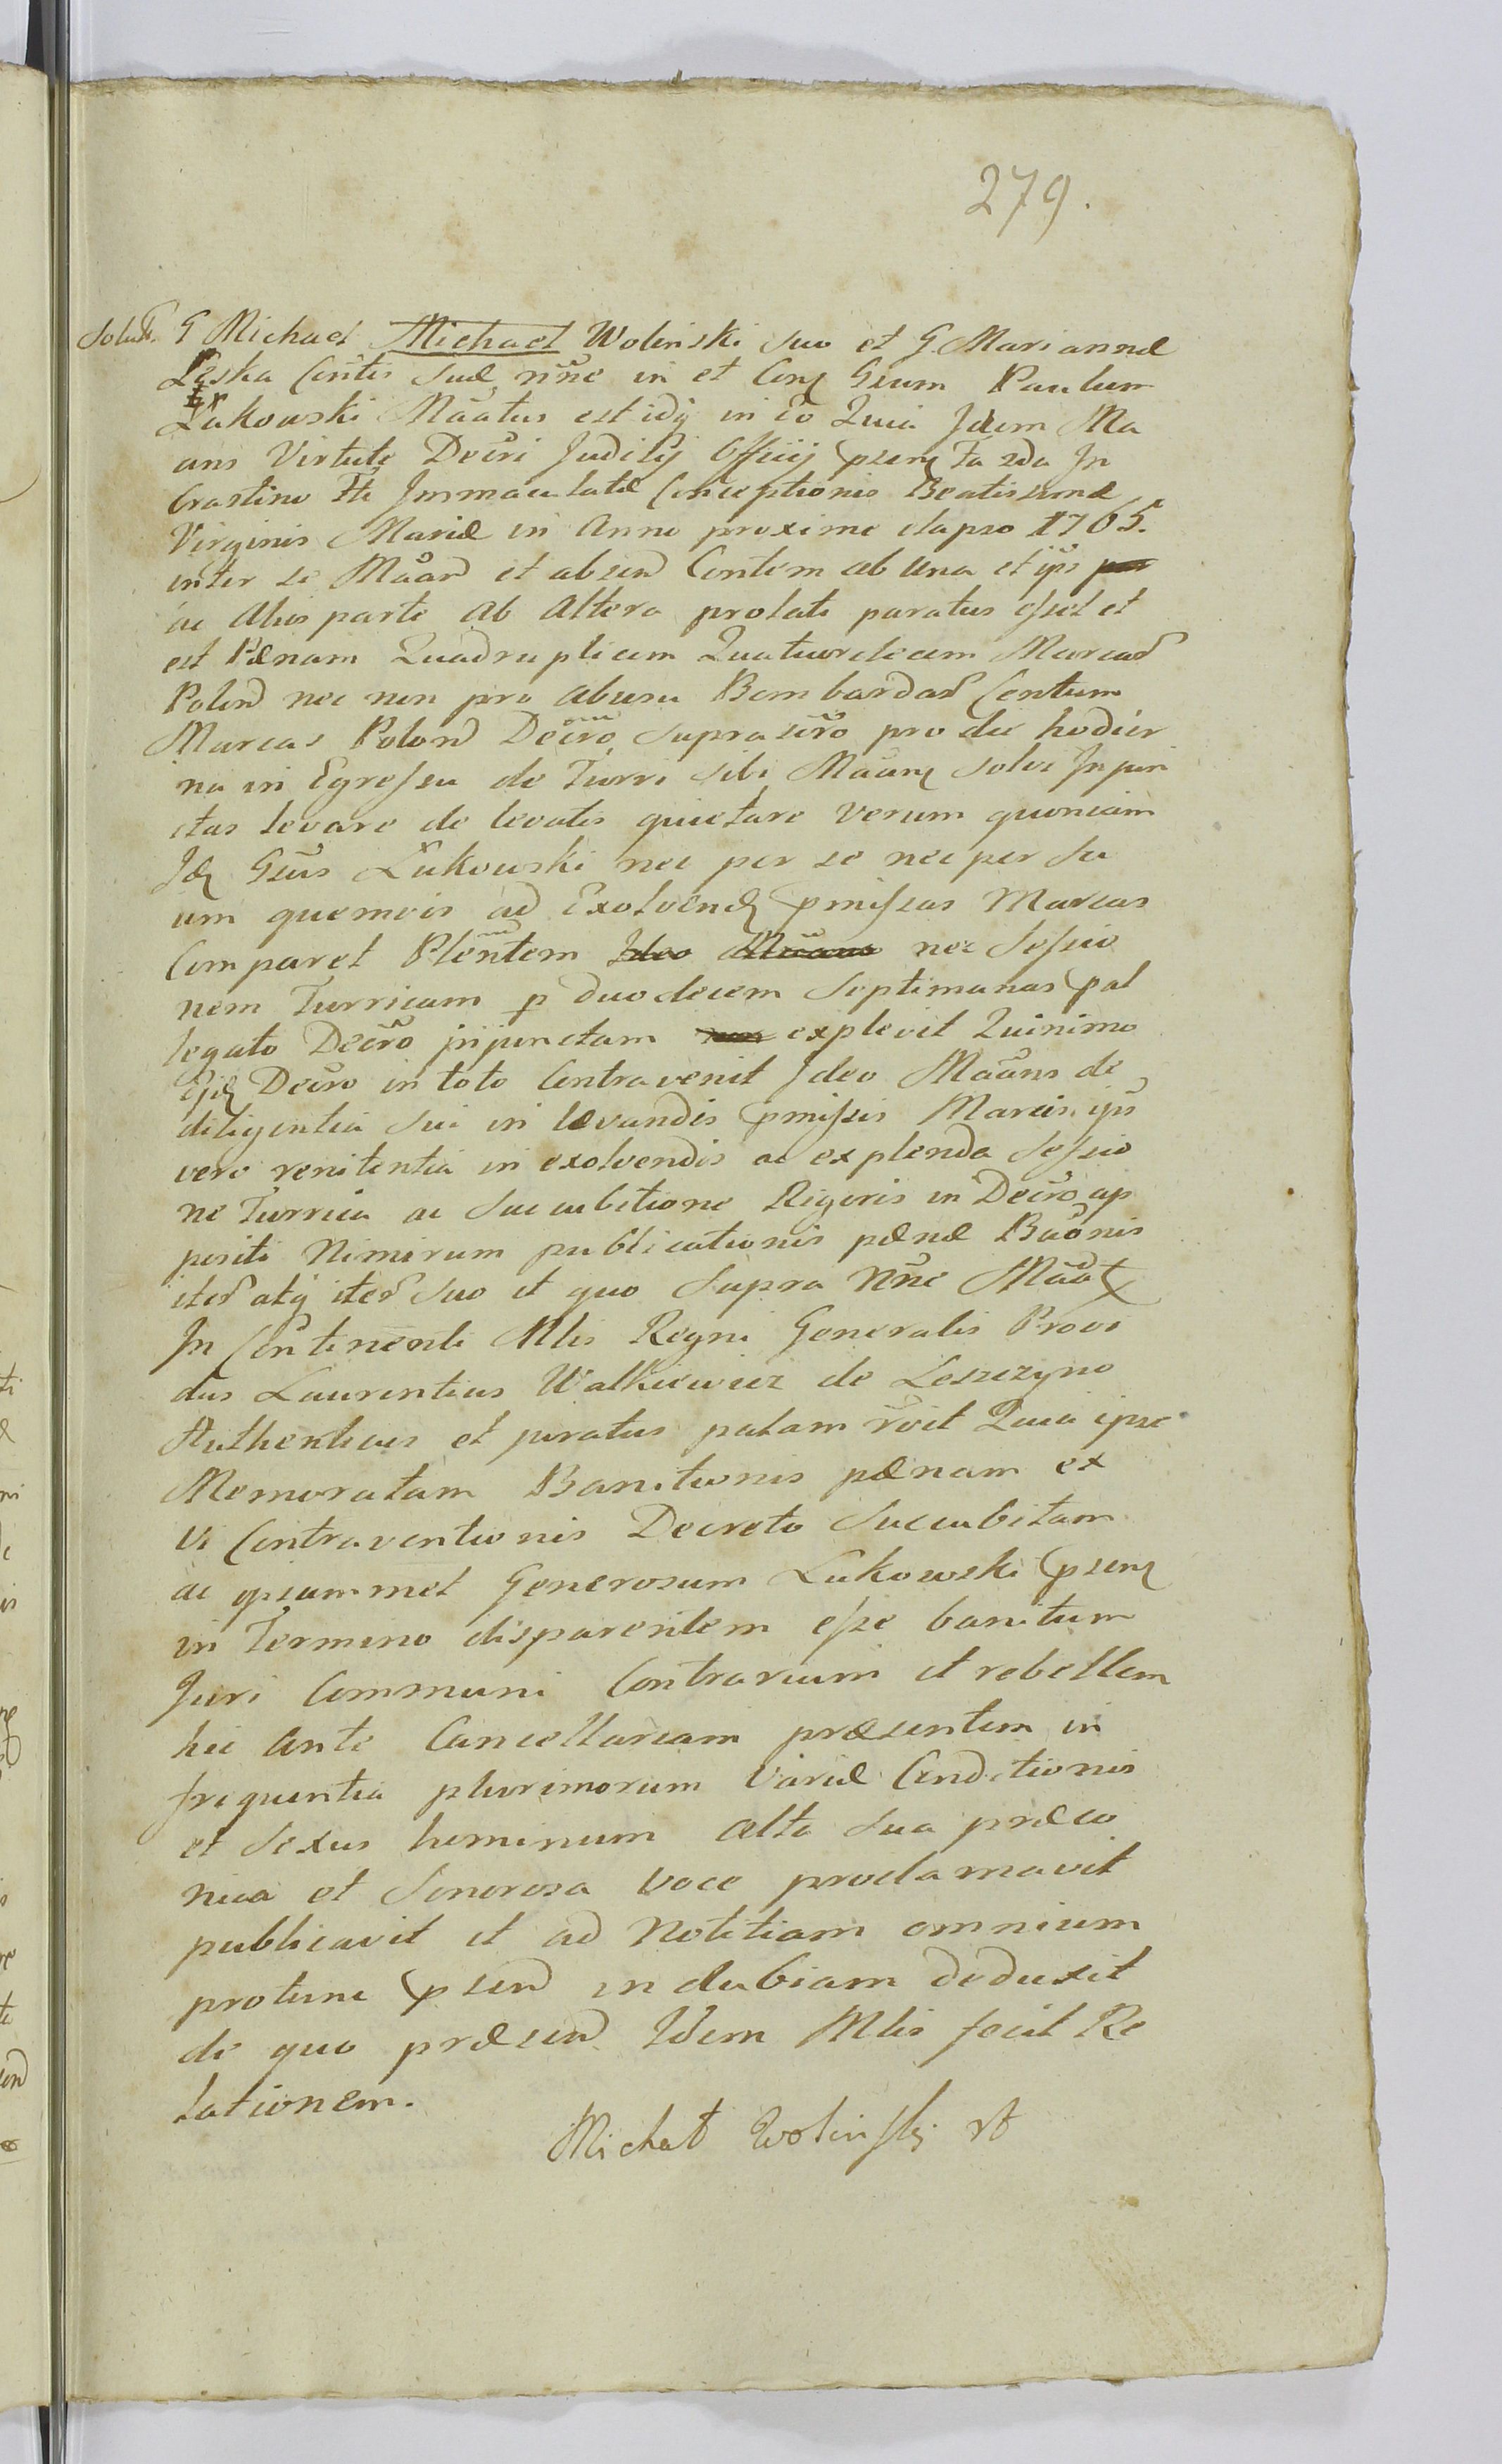 279.
Solut. G Michael Michael Wolinski suo et G. Mariannæ
Łęska Contis suæ nñe in et Conq Gsum Paulum
Łukowski Mãatus est idq in eo Quia Idem Ma
ans Virtute Decri Judicij Officij psenq Fa 2da In
Crastino Fti Immaculatæ Conceptionis Beatissimæ
Virginis Mariæ in Anno proxime elapso 1765.
inter se Mãan et absen Contem ab una et ips
ac Alios parte ab altera prolati paratus esset et
est Pænam Quadruplicem Quatuordecim Marcas
Polon nec non pro abusu Bombardar Centum
Marcas Polon Decro suprascro pro die hodier
na in Egressu de Turri sibi Mãanq solvi Injun
ctas levare de levatis quietare Verum quoniam
Idq Gsus Łukowski nec per se nec per su
um quemvis ad Exolvendq pmissas Marcas
Comparet Plentem Ideo Mãans nec Sessio
nem Turricam p duodecem Septimanas pal
legato Decro injunctam non explevit Quinimo
Ejdq Decro in toto Contravenit Ideo Mãans de
diligentia sui in levandis pmissis Marcis ips
vero renitentia in exolvendis ac explenda Sessio
ne Turrica ac Succubitione Rigoris in Decro ap
positi Nimirum publicationis pænæ Baonis
iter atq iter suo et quo Supra Nñe Mãat
In Continenti Mlis Regni Generalis Provi
dus Laurentius Walkiewicz de Leszczyno
Authenticus et juratus palam rõit Quia ipse
Memoratam Banitionis pænam ex
Vi Contraventionis Decreto Succubitam
ac ipsummet Generosum Lukowski psenq
in Termino disparentem esse banitum
Juri Communi Contrarium et rebellem
hic Ante Cancellariam præsentem in
frequentia plurimorum Variæ Conditionis
et Sexus hominum alta sua præco
nica et Sonorosa voce proclamavit
publicavit et ad Notitiam omnium
protunc psen indubiam deduxit
de quo præsen Idem Mlis fecit Re
lationem.
Michał Wolinski